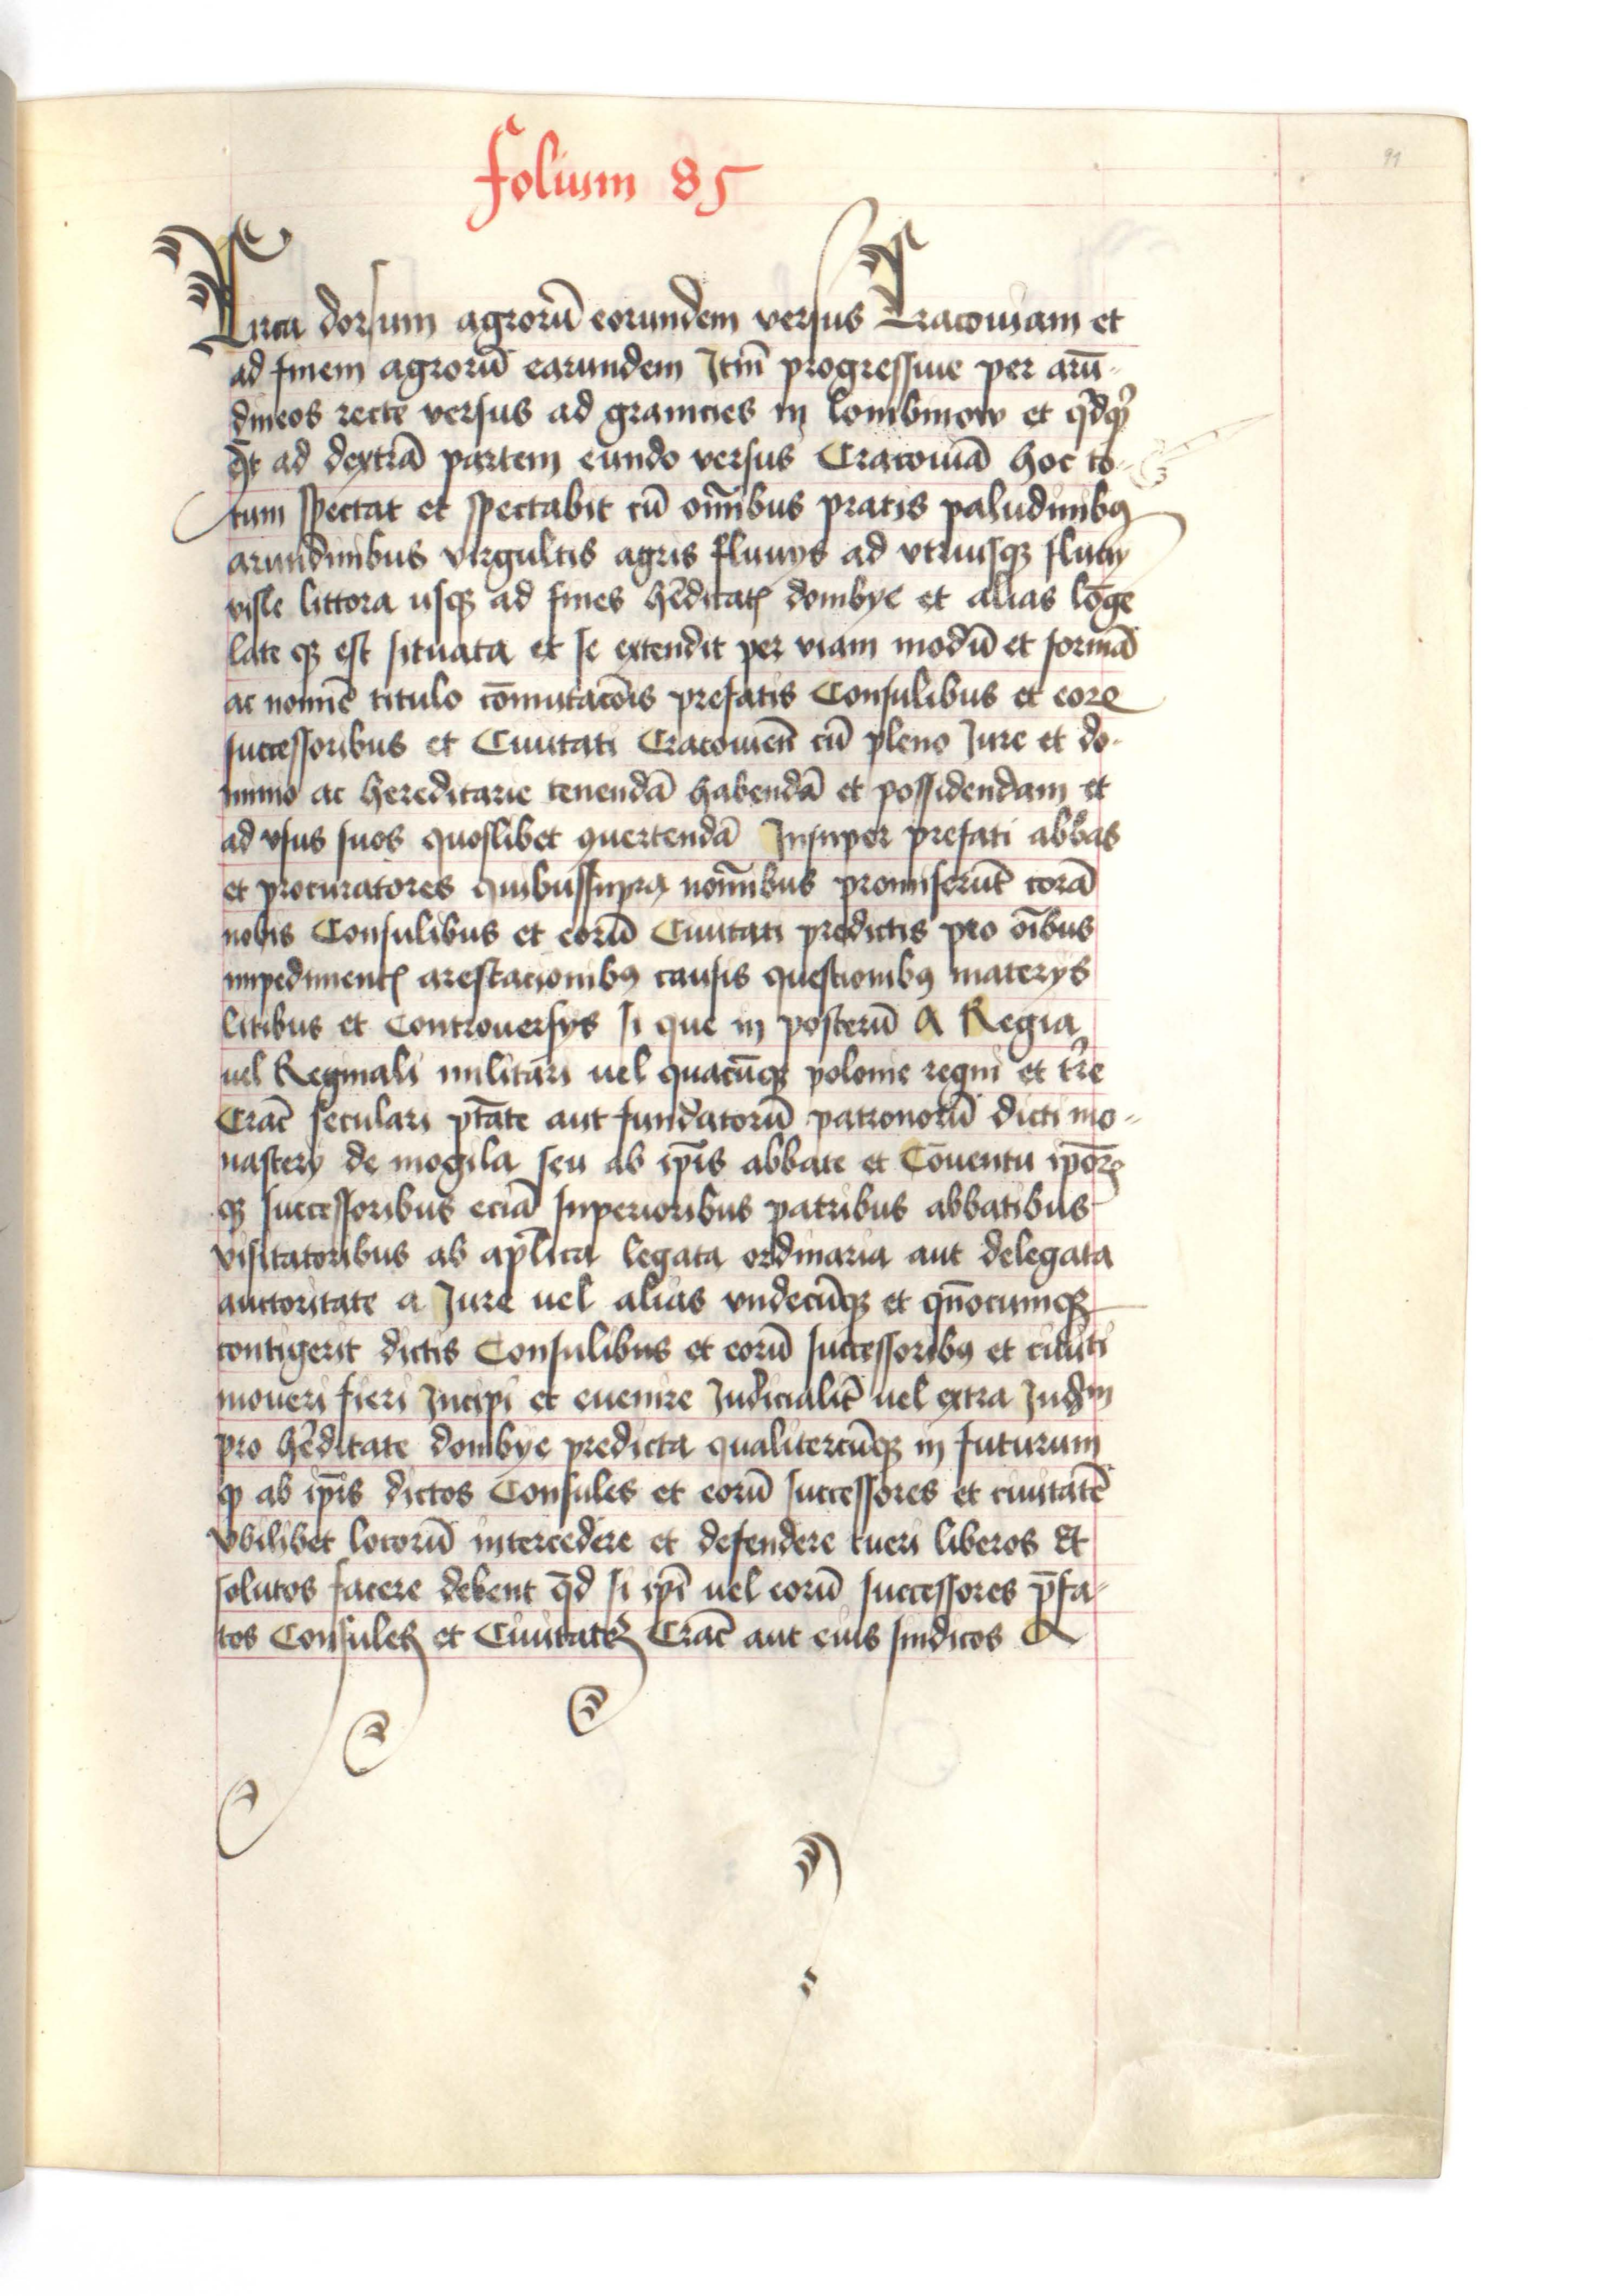 folium 85
91
Circa dorsum agrorū eorundem versus Cracouiam et
ad finem agrorū earundem Itm̄ progressiue per arū-
dineos recte versus ad granicies in lombinow et
ē ad dextrā partem eundo versus Cracouiā hoc to-
tum spectat et spectabit cū om̄ibus pratis paludinibꝰ
arundinibus virgultis agris fluuys ad vtriusqꝫ fluuy
visle littora usqꝫ ad fines hēditatꝭ dombye et alias lōge
late qꝫ est situata et se extendit per viam modū et formā
ac nomīe titulo cōmutacōis prefatis Consulibus et eorꝝ
successoribus et Ciuitati Cracouieñ cū pleno Iure et do-
minio ac hereditarie tenendā habendā et possidendam et
ad vsus suos quoslibet ꝯuertendā Insuper prefati abbas
et procuratores quibussupra nom̄ibus promiserūt corā
nobis Consulibus et eorū Ciuitati predictis pro oībus
impedimentꝭ arestacionibꝰ causis questionibꝰ materys
litibus et Controuersys si que in posterū A Regia
uel Reginali militari uel quacūqꝫ polonie regni et tr̄e
Crac̄ seculari ptāte aut fundatorū patronorū dicti mo-
nastery de mogila seu ab ip̄is abbate et Cōuentu ip̄orꝝ
qꝫ successoribus eciā superioribus patribus abbatibus
visitatoribus ab apl̄ica legata ordinaria aut delegata
auctoritate a Iure uel alias vndecūqꝫ et qn̄ocumqꝫ
contigerit dictis Consulibus et eorū successoribꝰ et ciuiti
moueri fieri Incipi et euenire Iudicialit̄ uel extra
pro hēditate dombye predicta qualitercūqꝫ in futurum
ꝙ ab ip̄is dictos Consules et eorū successores et ciuitatē
vbilibet locorū intercedere et defendere tueri liberos Et
solutos facere debent qd̄ si ip̄i uel eorū successores p̄fa-
tos Consules et Ciuitatē Crac̄ aut eius sindicos A